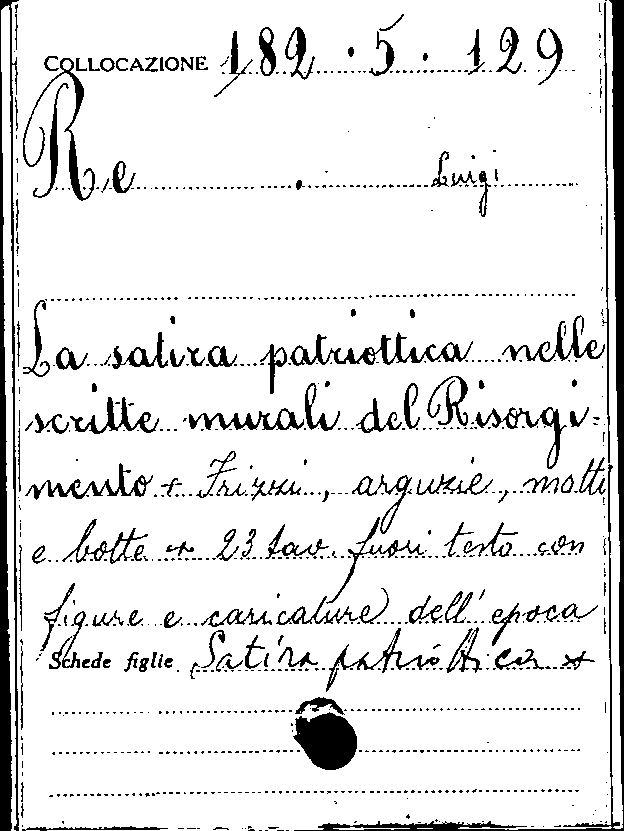 COLLOCAZIONE 182 . 5 . 129
Re . Luigi
La satira patriottica nelle
scritte murali del Risorgi-
mento + Frizzi, arguzie, motti
e botte + 23 tav. fuori testo con
figure e caricature dell' epoca
Schede figlie Satira patriottica +